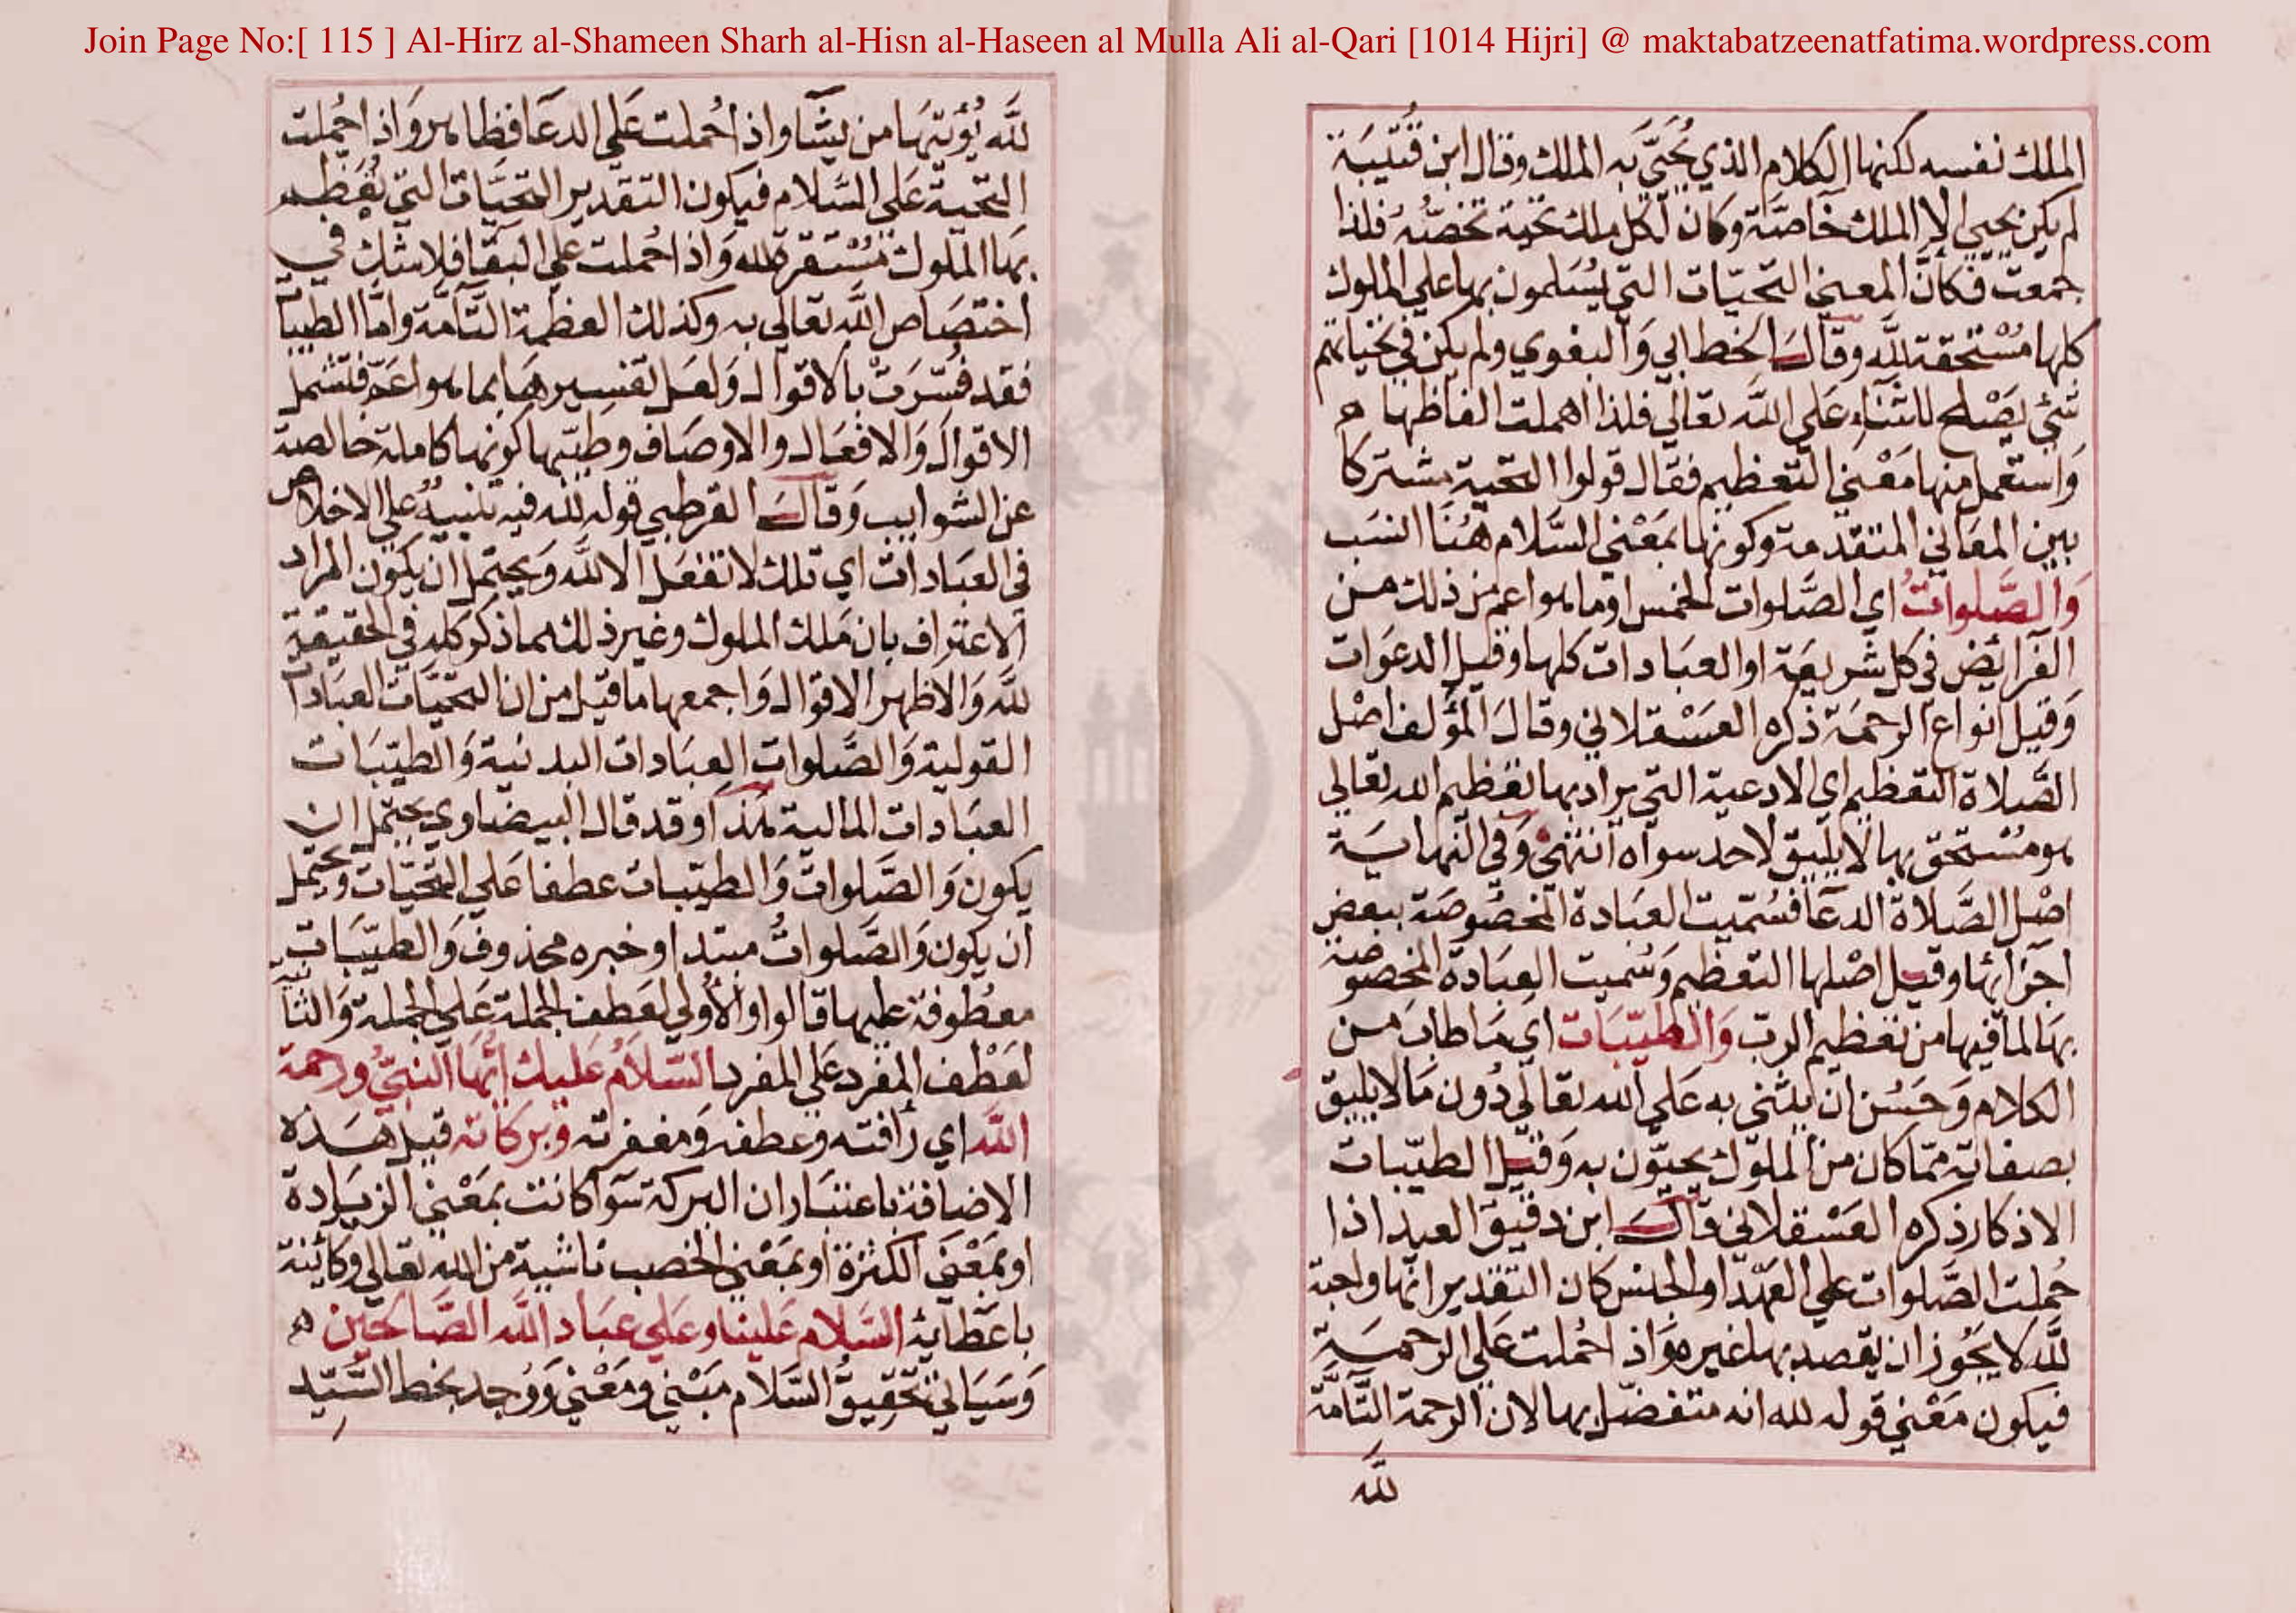 Join Page No:[ 115 ] Al-Hirz al-Shameen Sharh al-Hisn al-Haseen al Mulla Ali al-Qari [1014 Hijri] @ maktabatzeenatfatima.wordpress.com
الملك نفسه لكنها الكلام الذي يُحَيَّي به الملك وقال ابن قُتَيبَة
لم يكن يحيي الا الملك خاصَّة وكان لكل ملك تحية تخصّه فلذا
جمعت فكانّ المعني التحيّات التي يُسَلمون بها علي الملوك
كلها مُسْتحقة للَّه وقالَ الخطابي وَالبغوي ولم يكن في تحياتهم
شئ يَصْلح للثناء عَلي اللَّه تعالي فلذا اهملت الفاظها
وَاستعمل منها مَعْني التعظيم فقال قولوا التحية مشتركا
بين المعَاني المتقدمة وكونها بمَعْني السَّلام هُنَا انسَب
وَالصَّلواتُ اي الصَّلوات الخمس او ما هو اعم من ذلك من
الفَرايُض في كل شريعَة او العبَادات كلها وقيل الدعوَات
وَقيل انواع الرحمَة ذكره العسْقلاني وقالَ المؤلف اصْل
الصَّلاة التعظيم اي الادعية التي يراد بها تعظيم الله تعالي
هو مُسْتحق بها لا يليق لاحد سواه انتهيْ وَفي النهايَة
اصْل الصَّلاة الدعَا فسُمّيت العبَادة المخصُوصَة ببعض
اجزَائها وقيل اصْلها التعظيم وَسُميت العِبَادة المخصوصة
بهَا لما فيها من تعظيم الرب وَالطيّبَات اي مَا طابَ من
الكلام وَحَسُن ان يثني به عَلي الله تعالي دُون مَا لا يليق
بصفاته ممّا كان من الملوك يحيّون به وَقيل الطيّبات
الاذكار ذكره العَسْقلاني قالَ ابن دقيق العيد اذا
حُملت الصَّلوات علي العَهد او الجنس كان التقدير انّها واجبة
للَّه لا يجُوز ان يقصد بها غيره وَاذا حُملت عَلي الرحمَة
فيكون مَعْني قوله لله انه متفضّل بها لان الرحمة التَّامَّة
للَّه
للَّه يُؤتيهَا من يشَا واذا حُملت عَلي الدعَا فظاهر وَاذا حُملت
التحية عَلي السَّلام فيكون التقدير التحيَّات التي تُعَظم
بهَا الملوك مُسْتقرة لله وَاذا حُملت علي البقَا فلا شك في
اختصَاص اللَّه تعَالي به وكذلك العظمة التَّامَّة وامَّا الطيبا
فقد فُسّرَتْ بالاقوال وَلعَل تفسِيرهَا بما هو اعَمّ فتشمل
الاقوال وَالافعَال والاوصَاف وطيبها كونها كاملة خالصة
عن الشوايب وَقالَ القرطبي قوله للَّه فيه تنبيهٌ علي الاخلاص
في العبَادات اي تلك لا تفعَل الا للَّه وَيحتمل ان يكون المراد
الاعتراف بان مَلك الملوك وغير ذلك مما ذكر كله في الحقيقة
للَّه وَالاظهر الاقوال وَاجمعها مَا قيل من ان التحيَّات العبَادات
القولية وَالصَّلوات العِبَادات البدنية وَالطيّبَات
العبَادات المالية هَذا وقد قال البيضاوي يحتمل ان
يكون وَالصَّلوات وَالطيّبات عطفا عَلي التحيّات ويحتمل
ان يكون وَالصَّلواتُ مبتدا وخبره محذوف وَالطيّبَات
معْطوفة عليها قالواو الاُولي لعَطف الجملة عَلي الجملة وَالثانية
لعَطْف المفرد عَلي المفرد السّلاَمُ عَليك ايّها النبيُّ ورحمة
اللَّه اي رَافته وعطفه وَمغفرته وبركاته قيل هَذه
الاضافة باعتبَار ان البركة سَوآ كانت بمَعْني الزيَادة
او بمَعْني الكثرة او بمَعْني الخصب ناشية من الله تعالي وَكائنة
باعَطائهُ السَّلام عَلينا وعَلي عبَاد اللَّه الصَّالحيْن
وَسَيَاتي تحقيقُ السَّلام مبْني ومَعْني وَوُجد بخط السَّيّد